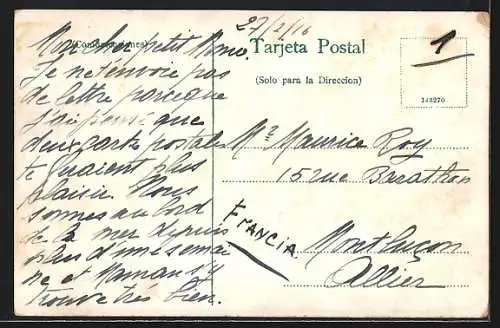 27/2/16
(Comunicaciones)
Tarjeta Postal
(Solo para la Direccion)
1
348270
Mon cher petit Momo.
Je ne t'envoie pas
de lettre parceque
J'ai pensé que
deux cartes postales
te feraient plus
plaisir. Nous
sommes au bord
de la mer depuis
plus d'une semai
ne et Maman s'y
trouve très bien.
Mr. Maurice Roy
15 rue Barathon
Montluçon
Allier
FRANCIA